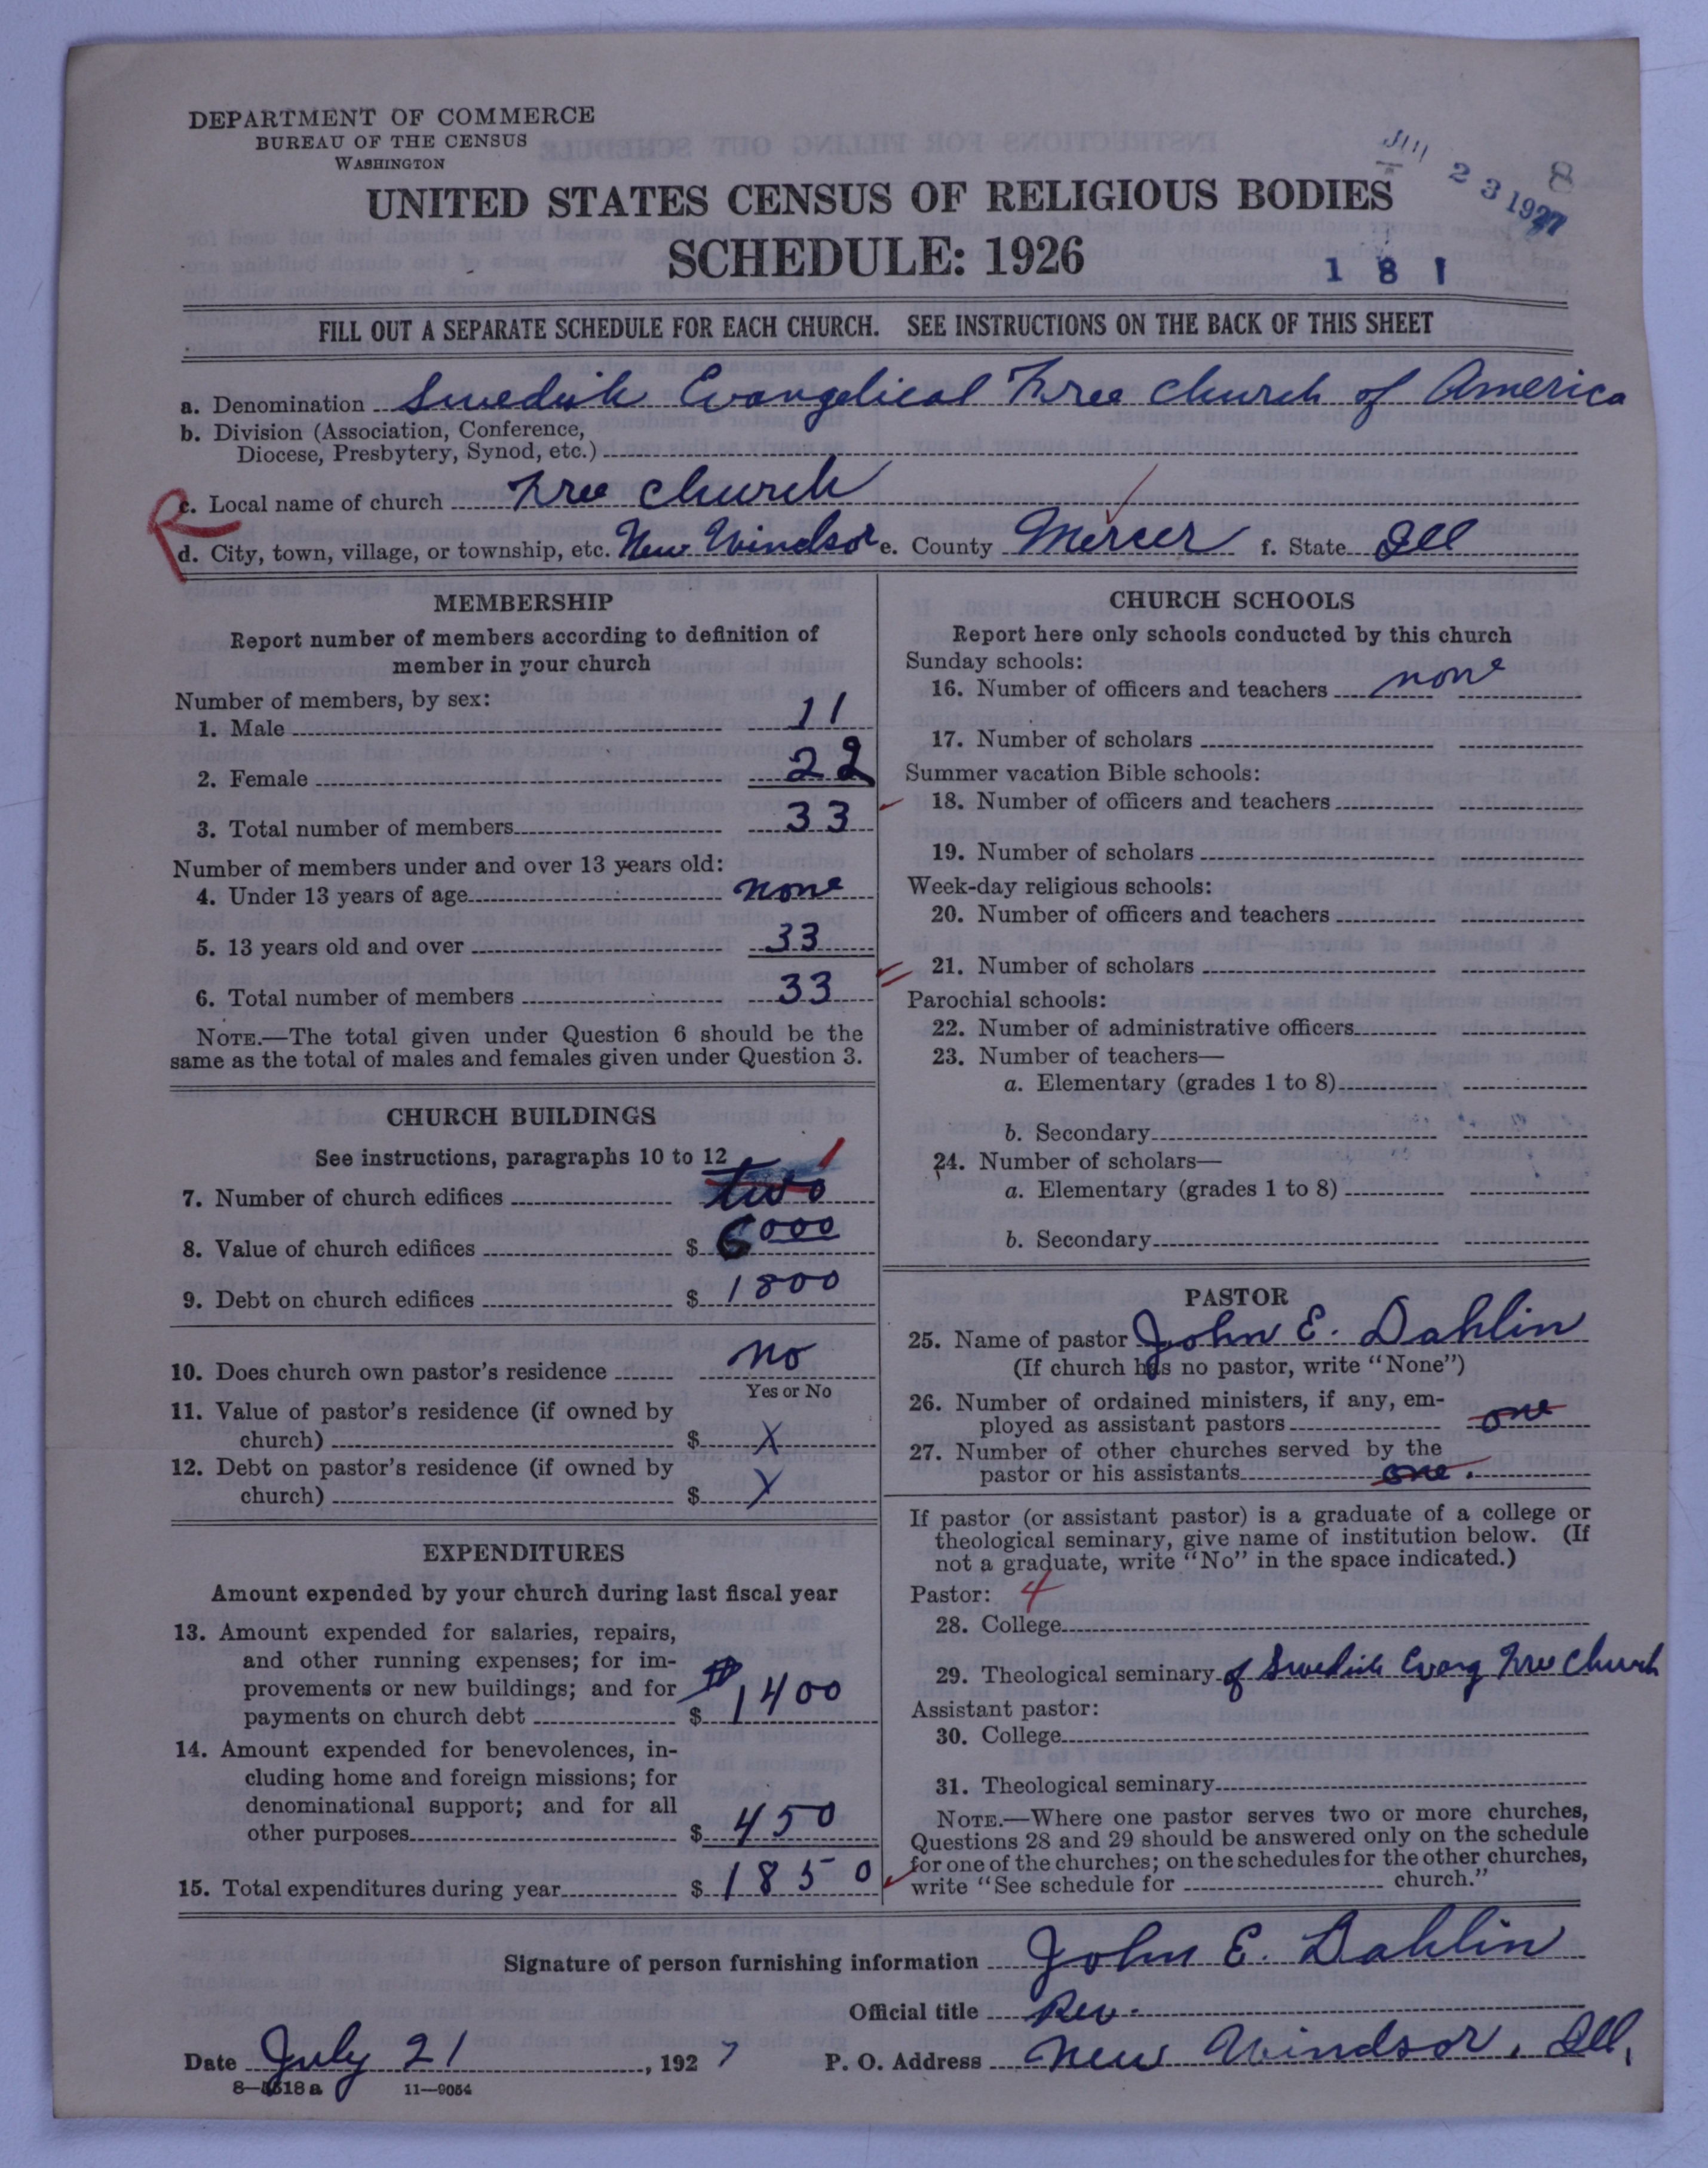 DEPARTMENT OF COMMERCE
BUREAU OF THE CENSUS
WASHINGTON
UNITED STATES CENSUS OF RELIGIOUS BODIES
SCHEDULE: 1926
JUL 23 1927
8
181
FILL OUT A SEPARATE SCHEDULE FOR EACH CHURCH. SEE INSTRUCTIONS ON THE BACK OF THIS SHEET
a. Denomination Swedish Evangelical Free Church of America
b. Division (Association, Conference,
Diocese, Presbytery, Synod, etc.)
c. Local name of church Free Church
d. City, town, village, or township, etc. New Windsor e. County Mercer f. State Ill
MEMBERSHIP
Report number of members according to definition of
member in your church
Number of members, by sex:
1. Male 11
2. Female 22
3. Total number of members 33
Number of members under and over 13 years old:
4. Under 13 years of age none
5. 13 years old and over 33
6. Total number of members 33
NOTE.—The total given under Question 6 should be the
same as the total of males and females given under Question 3.
CHURCH BUILDINGS
See instructions, paragraphs 10 to 12
7. Number of church edifices two 1
8. Value of church edifices $ 6000
9. Debt on church edifices $ 1800
10. Does church own pastor's residence no
Yes or No
11. Value of pastor's residence (if owned by
church) $ X
12. Debt on pastor's residence (if owned by
church) $ X
EXPENDITURES
Amount expended by your church during last fiscal year
13. Amount expended for salaries, repairs,
and other running expenses; for im-
provements or new buildings; and for
payments on church debt $ $1400
14. Amount expended for benevolences, in-
cluding home and foreign missions; for
denominational support; and for all
other purposes $ 450
15. Total expenditures during year $ 1850
CHURCH SCHOOLS
Report here only schools conducted by this church
Sunday schools:
16. Number of officers and teachers none
17. Number of scholars
Summer vacation Bible schools:
18. Number of officers and teachers
19. Number of scholars
Week-day religious schools:
20. Number of officers and teachers
21. Number of scholars
Parochial schools:
22. Number of administrative officers
23. Number of teachers—
a. Elementary (grades 1 to 8)
b. Secondary
24. Number of scholars—
a. Elementary (grades 1 to 8)
b. Secondary
PASTOR
25. Name of pastor John E. Dahlin
(If church has no pastor, write "None")
26. Number of ordained ministers, if any, em-
ployed as assistant pastors one
27. Number of other churches served by the
pastor or his assistants one.
If pastor (or assistant pastor) is a graduate of a college or
theological seminary, give name of institution below. (If
not a graduate, write "No" in the space indicated.)
Pastor: 4
28. College
29. Theological seminary of Swedish Evang Free Church
Assistant pastor:
30. College
31. Theological seminary
NOTE.—Where one pastor serves two or more churches,
Questions 28 and 29 should be answered only on the schedule
for one of the churches; on the schedules for the other churches,
write "See schedule for church."
Signature of person furnishing information John E. Dahlin
Official title Rev.
Date July 21, 1927 P. O. Address New Windsor, Ill.
8—5518a 11—9054